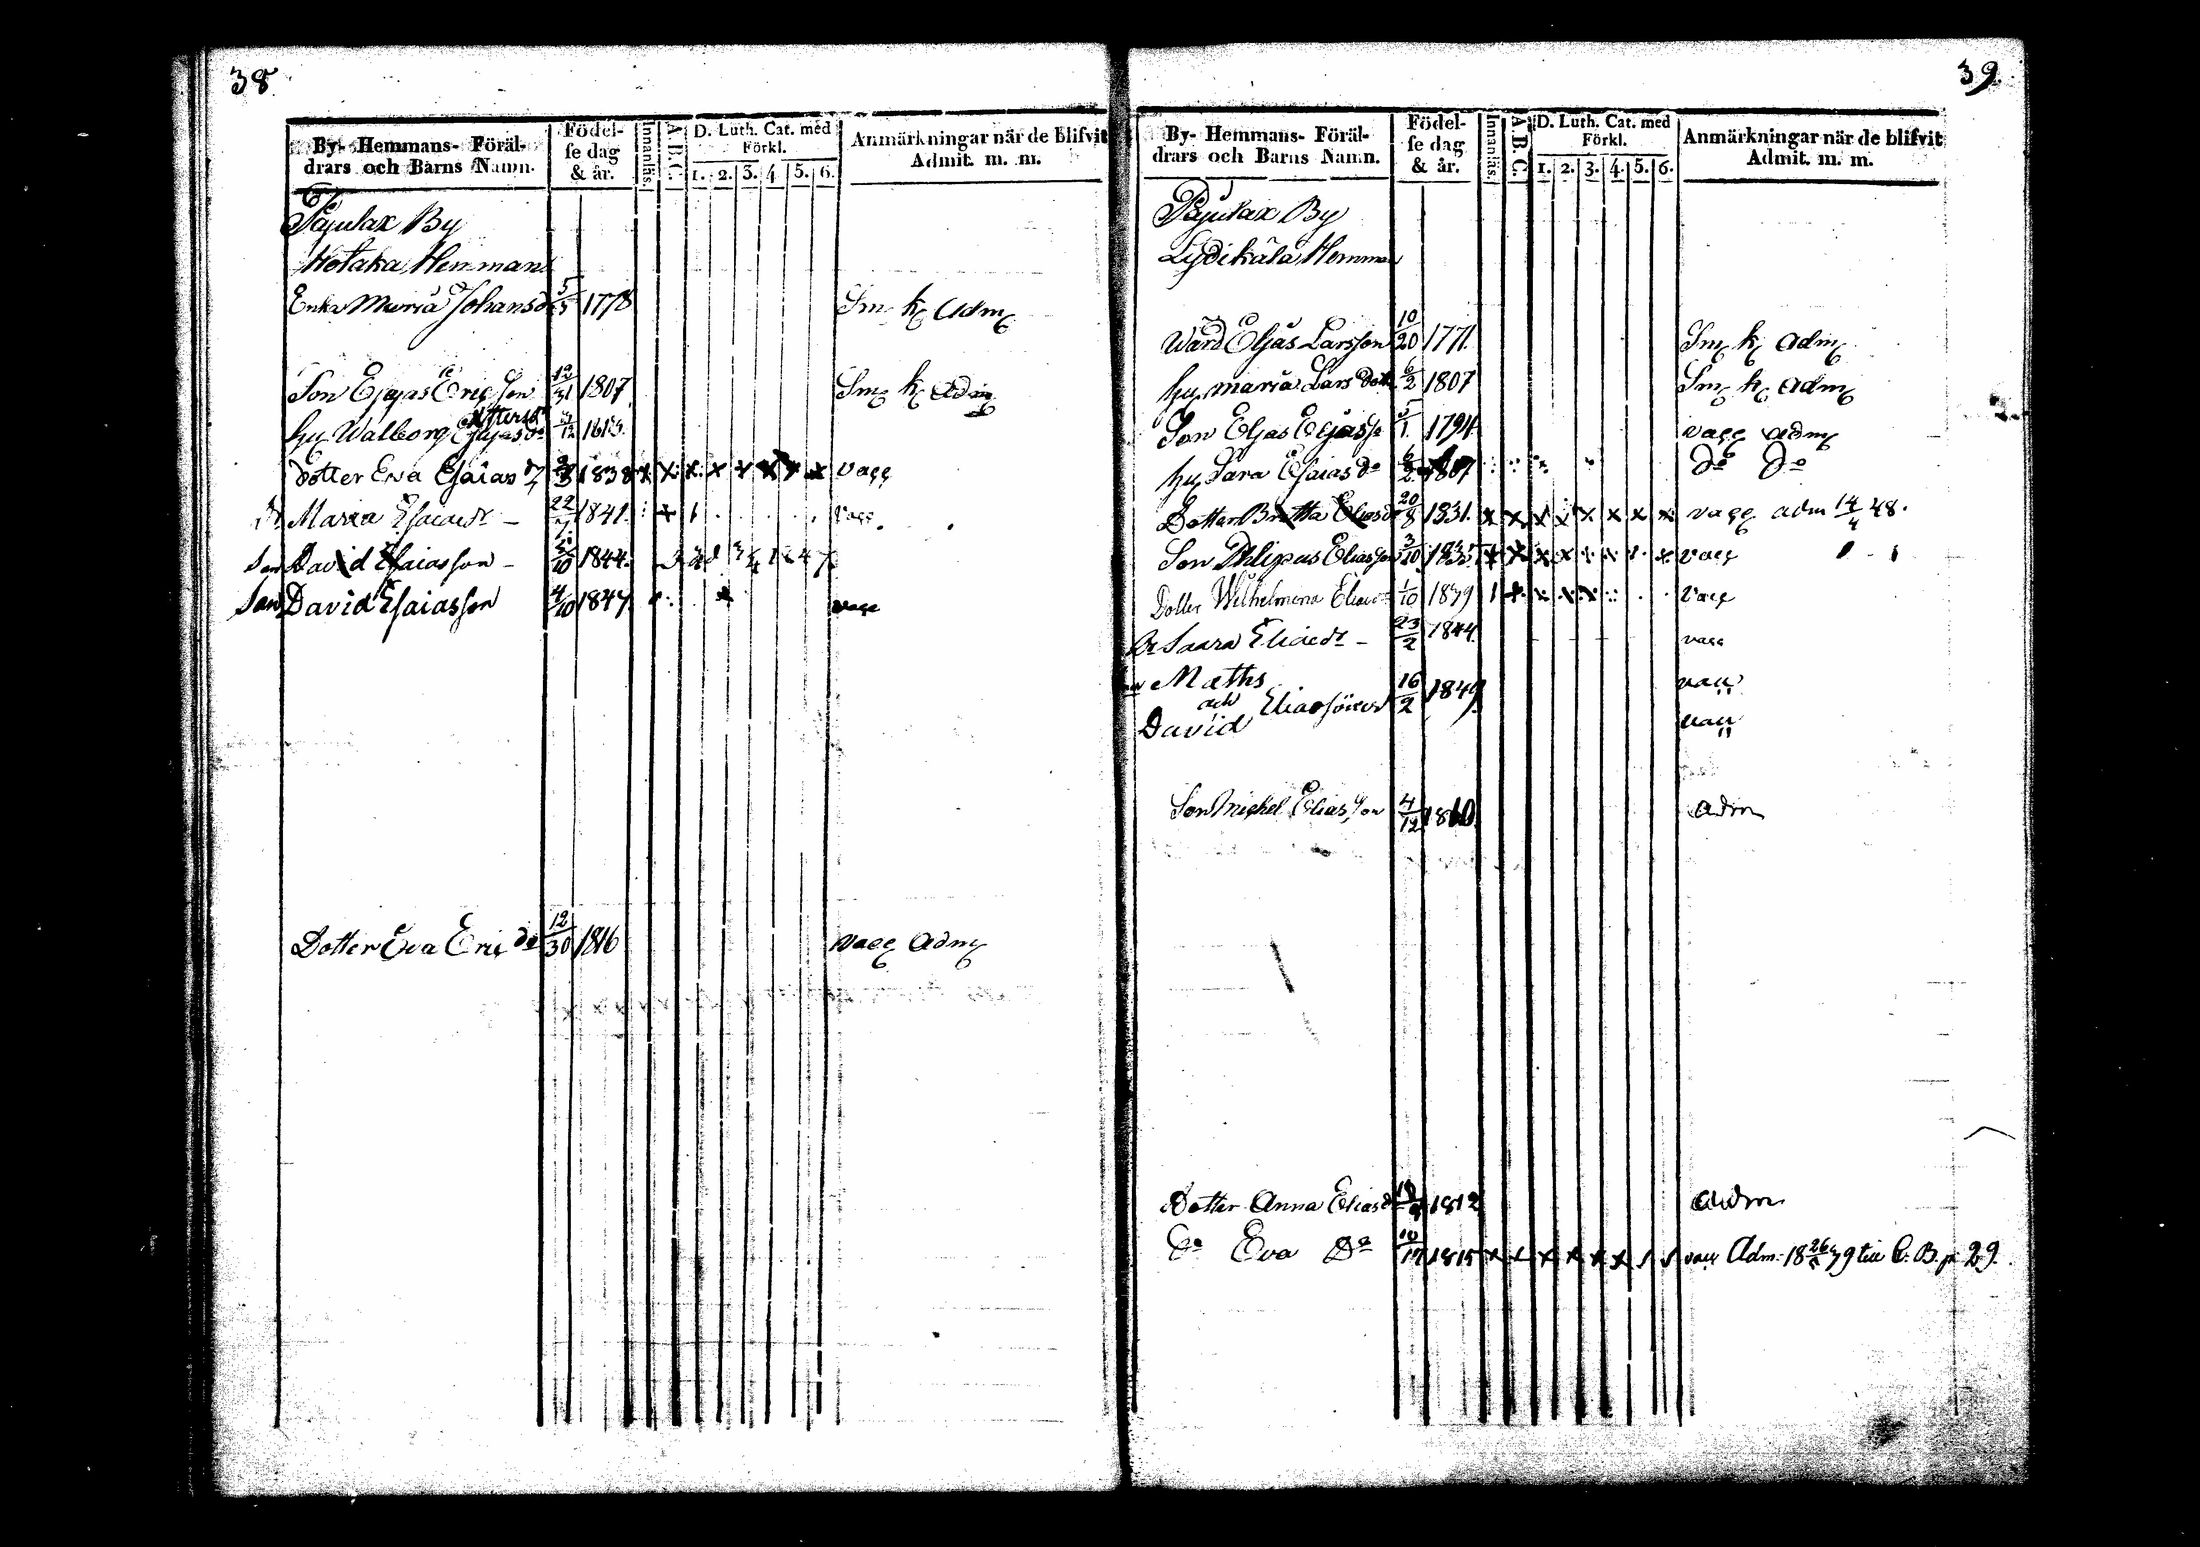 38
By- Hemmans- Föräl-
drars och Barns Namn.
Födel-
se dag
& år.
Innanläs.
A.B.C.
D. Luth. Cat. med
Förkl.
1. 2. 3. 4. 5. 6.
Anmärkningar när de blifvit
Admit. m. m.
Pajulax By
Hotaka Hemman
Enka Maria Johansd 5/5 1778 Sm k Adm
Son Esajas Ericsson 12/31 1807 Sm k Adm
hu Walborg 12
Dotter Eva Esaias 1838 x x x x x x x x vacc
Maria Esaiasdr 22/7 1841 x 1 vacc
Son David Esaiasson 10 1844
Son David Esaiasson 4/10 1847 vacc
Dotter Eva Eric do 12/30 1816 vacc Adm
39.
By- Hemmans- Föräl-
drars och Barns Namn.
Födel-
se dag
& år.
Innanläs.
A.B.C.
D. Luth. Cat. med
Förkl.
1. 2. 3. 4. 5. 6.
Anmärkningar när de blifvit
Admit. m. m.
Pajulax By
Lydikäla Hemman
Wärd Eljas Larsson 10/20 1771 Sm k adm
hu maria Lars dott 6/2 1807 Sm k adm
Son Eljas Eljass 5/1 1794 vacc adm
hu Sara Esaias do 6/2 1807 do do
Dotter Britta Elias d 20/8 1831 x x x x x x x x vacc adm 14/4 48.
Son Philipus Eliasson 3/10 1835 x x x x x x 1 x vacc
Dotter Wilhelmina Elias 1/10 1839 1 x x x x vacc
Dr Saara Eliaedr 23/2 1844 vacc
Maths
och Eliassöner 16/2 1849 vacc
David vacc
Son Michel Elias son 4/12 1810 adm
Dotter Anna Elias d 1812 adm
Do Eva Do 10 1815 x x x x x x vacc Adm. 18 26 39 till C. B. p 29.